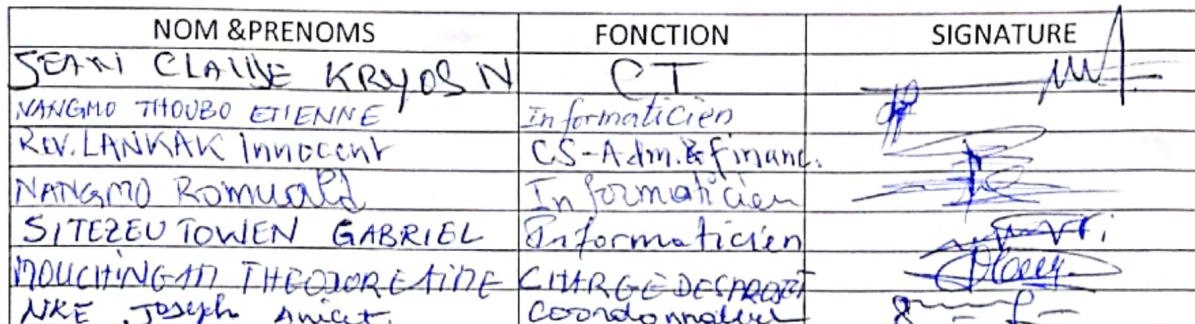 NOM &PRENOMS FONCTION SIGNATURE
JEAN CLAUDE KRYOSIN CT
NANGMO THOUBO ETIENNE Informaticien
Rev. LANKAK Innocent CS-Adm. & financ.
NANGMO Romuald Informaticien
SITEZEU TOWEN GABRIEL Informaticien
MOUCHINGAM THEODORE AIME CHARGE DES PROJET
NKE Joseph Anicet. Coordonnateur